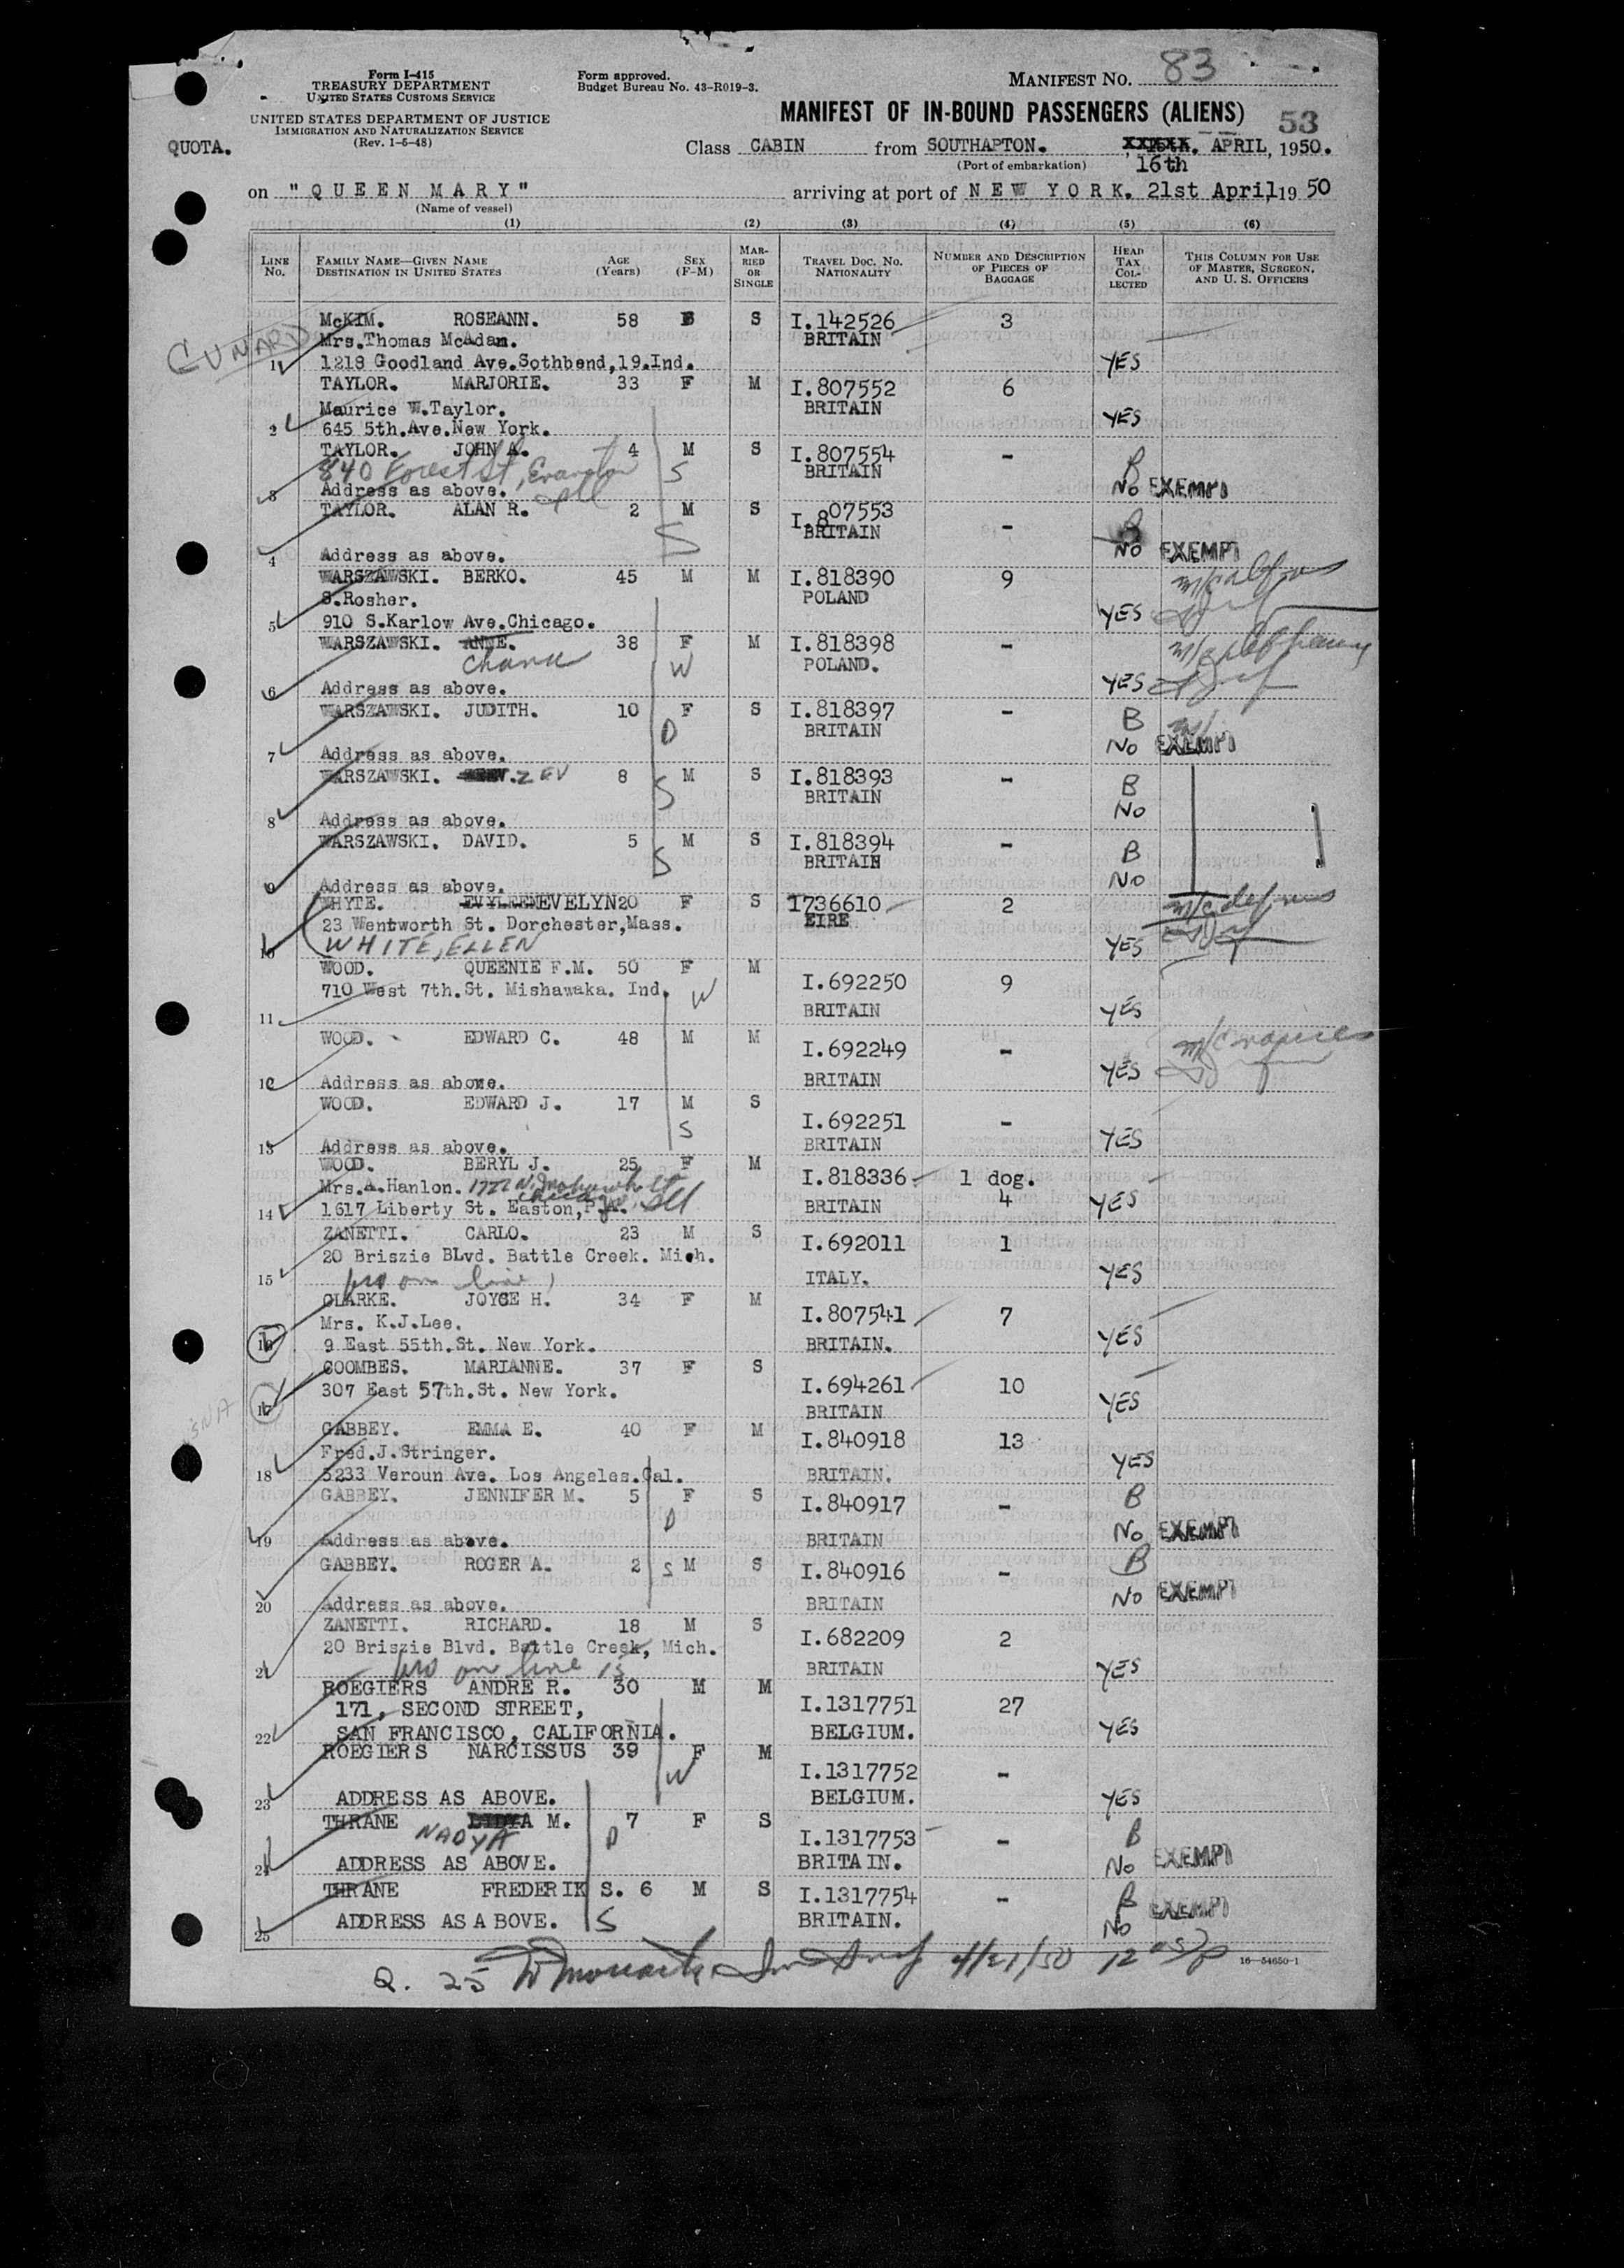 MANIFEST NO. 83
Form I-415
TREASURY DEPARTMENT
UNITED STATES CUSTOMS SERVICE
Form approved.
Budget Bureau No. 43-R019-3.
UNITED STATES DEPARTMENT OF JUSTICE
IMMIGRATION AND NATURALIZATION SERVICE
(Rev. 1-5-48)
MANIFEST OF IN-BOUND PASSENGERS (ALIENS) 53
QUOTA.
Class CABIN from SOUTHAPTON. , APRIL, 1950.
(Port of embarkation) 16th
on "QUEEN MARY" arriving at port of NEW YORK. 21st April, 19 50
(Name of vessel)
(1) (2) (3) (4) (5) (6)
LINE NO. FAMILY NAME—GIVEN NAME DESTINATION IN UNITED STATES AGE (Years) SEX (F-M) MARRIED OR SINGLE TRAVEL DOC. NO. NATIONALITY NUMBER AND DESCRIPTION OF PIECES OF BAGGAGE HEAD TAX COLLECTED THIS COLUMN FOR USE OF MASTER, SURGEON, AND U. S. OFFICERS
CUNARD
McKIM. ROSEANN. 58 S I.142526 3
Mrs.Thomas McAdam. BRITAIN
1 1218 Goodland Ave.Sothbend,19.Ind. YES
TAYLOR. MARJORIE. 33 F M I.807552 6
Maurice W.Taylor. BRITAIN
2 645 5th.Ave.New York. YES
TAYLOR. JOHN A. 4 M S I.807554 -
840 Forest St, Evanston Ill S BRITAIN B
3 Address as above. No EXEMPT
TAYLOR. ALAN R. 2 M S I.807553 -
S BRITAIN B
4 Address as above. No EXEMPT
WARSZAWSKI. BERKO. 45 M M I.818390 9
S.Rosher. POLAND
5 910 S.Karlow Ave.Chicago. YES
WARSZAWSKI. ANNE. 38 F M I.818398 -
Chana W POLAND.
6 Address as above. YES
WARSZAWSKI. JUDITH. 10 F S I.818397 - B
D BRITAIN
7 Address as above. No EXEMPT
WARSZAWSKI. ZEV 8 M S I.818393 - B
S BRITAIN
8 Address as above. No
WARSZAWSKI. DAVID. 5 M S I.818394 - B
S BRITAIN
9 Address as above. No
WHYTE. EVYLEEN EVELYN 20 F S I736610 2
23 Wentworth St. Dorchester,Mass. EIRE
10 WHITE, ELLEN YES
WOOD. QUEENIE F.M. 50 F M I.692250 9
710 West 7th.St. Mishawaka. Ind. W
11 BRITAIN YES
WOOD. EDWARD C. 48 M M I.692249 -
12 Address as above. BRITAIN YES
WOOD. EDWARD J. 17 M S I.692251 -
S
13 Address as above. BRITAIN YES
WOOD. BERYL J. 25 F M I.818336 1 dog.
Mrs.A.Hanlon. 1722 N. Mohawk St
Chicago, Ill
14 1617 Liberty St. Easton, P.A. BRITAIN 4 YES
ZANETTI. CARLO. 23 M S I.692011 1
20 Briszie BLvd. Battle Creek. Mich.
15 ITALY. YES
CLARKE. JOYCE H. 34 F M I.807541 7
Mrs. K.J.Lee.
16 9 East 55th.St. New York. BRITAIN. YES
COOMBES. MARIANNE. 37 F S I.694261 10
307 East 57th.St. New York.
17 BRITAIN YES
GABBEY. EMMA E. 40 F M I.840918 13
Fred.J.Stringer.
18 5233 Veroun Ave. Los Angeles.Cal. BRITAIN. YES
GABBEY. JENNIFER M. 5 F S I.840917 - B
D
19 Address as above. BRITAIN No EXEMPT
GABBEY. ROGER A. 2 S M S I.840916 - B
20 Address as above. BRITAIN No EXEMPT
ZANETTI. RICHARD. 18 M S I.682209 2
20 Briszie Blvd. Battle Creek, Mich.
21 on line 15 BRITAIN YES
ROEGIERS ANDRE R. 30 M M I.1317751 27
171, SECOND STREET,
22 SAN FRANCISCO, CALIFORNIA. BELGIUM. YES
ROEGIERS NARCISSUS 39 F M I.1317752 -
W
23 ADDRESS AS ABOVE. BELGIUM. YES
THRANE M. 7 F S I.1317753 - B
NADYA D
24 ADDRESS AS ABOVE. BRITAIN. No EXEMPT
THRANE FREDERIK S. 6 M S I.1317754 - B EXEMPT
25 ADDRESS AS A BOVE. S BRITAIN. No
Q. 25 4/21/50 12 05 p
16—54650-1